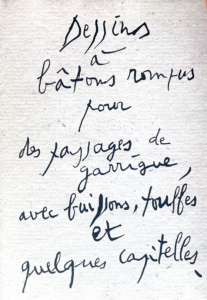 Dessins
à
bâtons rompus
pour
des paysages de
garrigue,
avec buissons, touffes
et
quelques capitelles